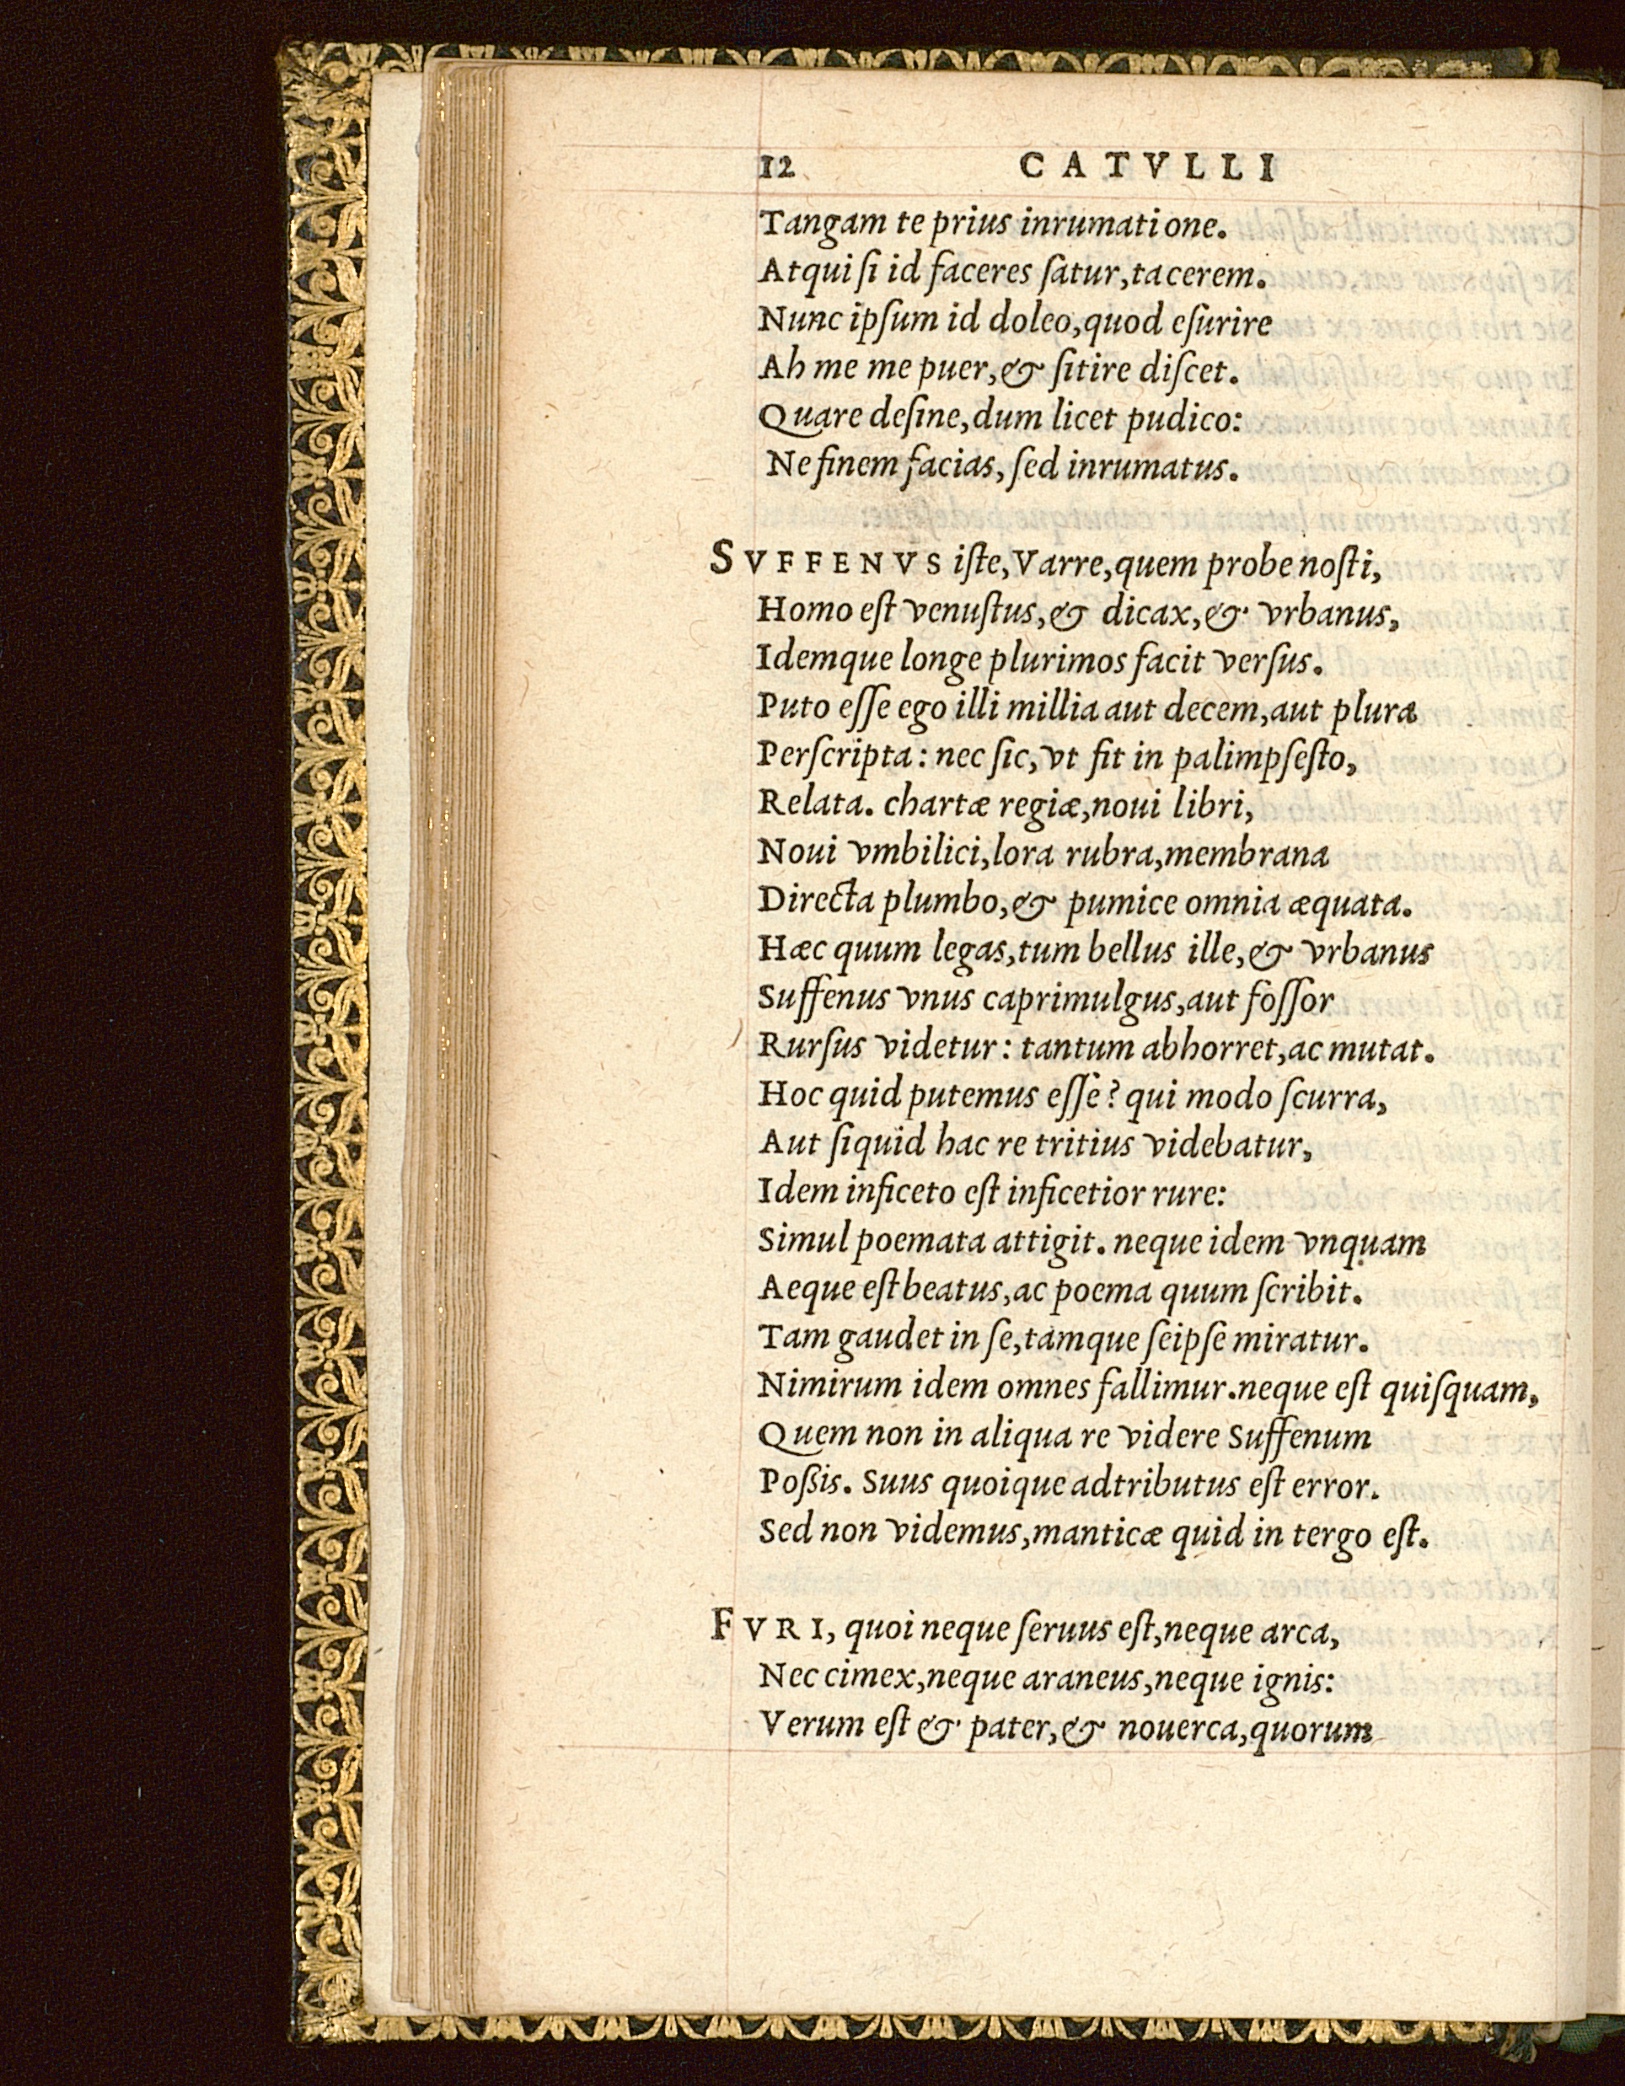 12 CATVLLI
Tangam te prius inrumatione.
Atqui ſi id faceres ſatur, tacerem.
Nunc ipſum id doleo, quod eſurire
Ah me me puer, & ſitire diſcet.
Quare deſine, dum licet pudico:
Ne finem facias, ſed inrumatus.
SVFFENVS iſte, Varre, quem probe noſti,
Homo eſt venuſtus, & dicax, & vrbanus,
Idemque longe plurimos facit verſus.
Puto eſſe ego illi millia aut decem, aut plura
Perſcripta: nec ſic, vt fit in palimpſeſto,
Relata. chartæ regiæ, noui libri,
Noui vmbilici, lora rubra, membrana
Directa plumbo, & pumice omnia æquata.
Hæc quum legas, tum bellus ille, & vrbanus
Suffenus vnus caprimulgus, aut foſſor
Rurſus videtur: tantum abhorret, ac mutat.
Hoc quid putemus eſſe? qui modo ſcurra,
Aut ſiquid hac re tritius videbatur,
Idem inficeto eſt inficetior rure:
Simul poemata attigit. neque idem vnquam
Aeque eſt beatus, ac poema quum ſcribit.
Tam gaudet in ſe, tamque ſeipſe miratur.
Nimirum idem omnes fallimur. neque eſt quiſquam,
Quem non in aliqua re videre Suffenum
Poßis. Suus quoique adtributus eſt error.
Sed non videmus, manticæ quid in tergo eſt.
FVRI, quoi neque ſeruus eſt, neque arca,
Nec cimex, neque araneus, neque ignis:
Verum eſt & pater, & nouerca, quorum